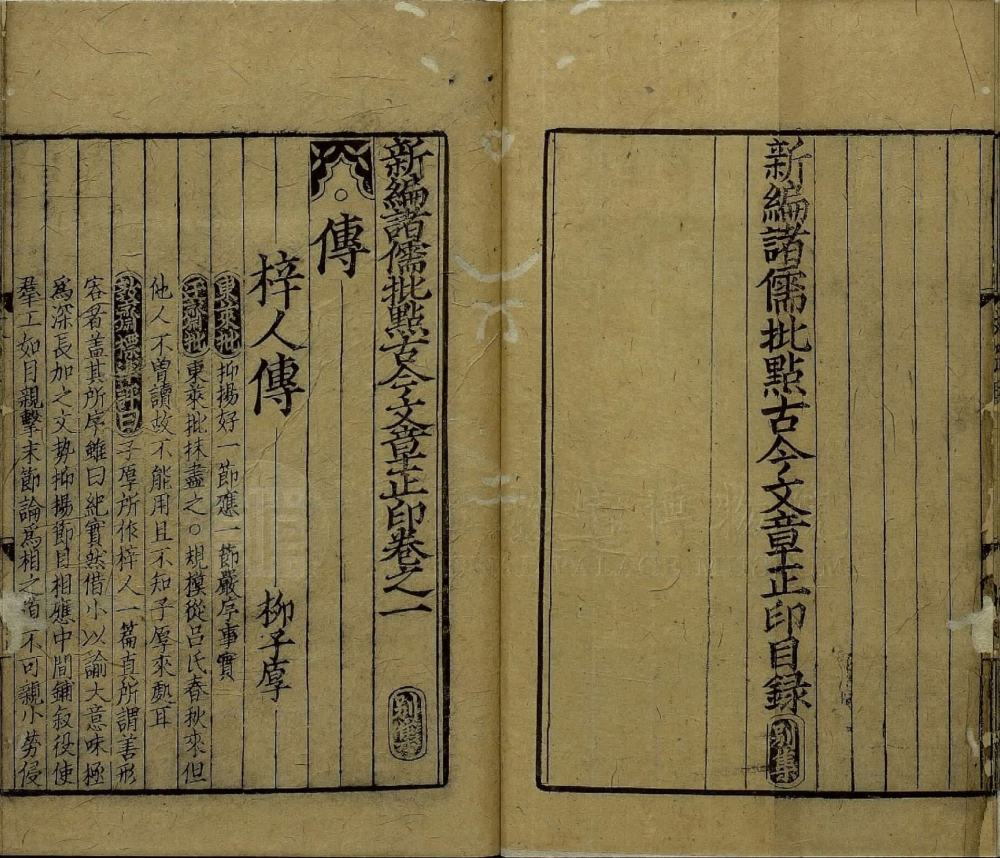 新編諸儒批點古今文章正印目錄 別集
新編諸儒批點古今文章正印卷之一 別集
傳
梓人傳 柳子厚
東萊批 抑揚好一節應一節嚴序事實
迂齋批 東萊批抹盡之○規模從呂氏春秋來但
他人不曾讀故不能用且不知子厚來處耳
敩齋標 曰 子厚所作梓人一篇真所謂善形
容者蓋其所序雖曰紀實然借小以諭大意味極
爲深長加之文勢抑揚節目相應中間鋪叙役使
羣工如目親擊末節論爲相之道不可親小勞侵